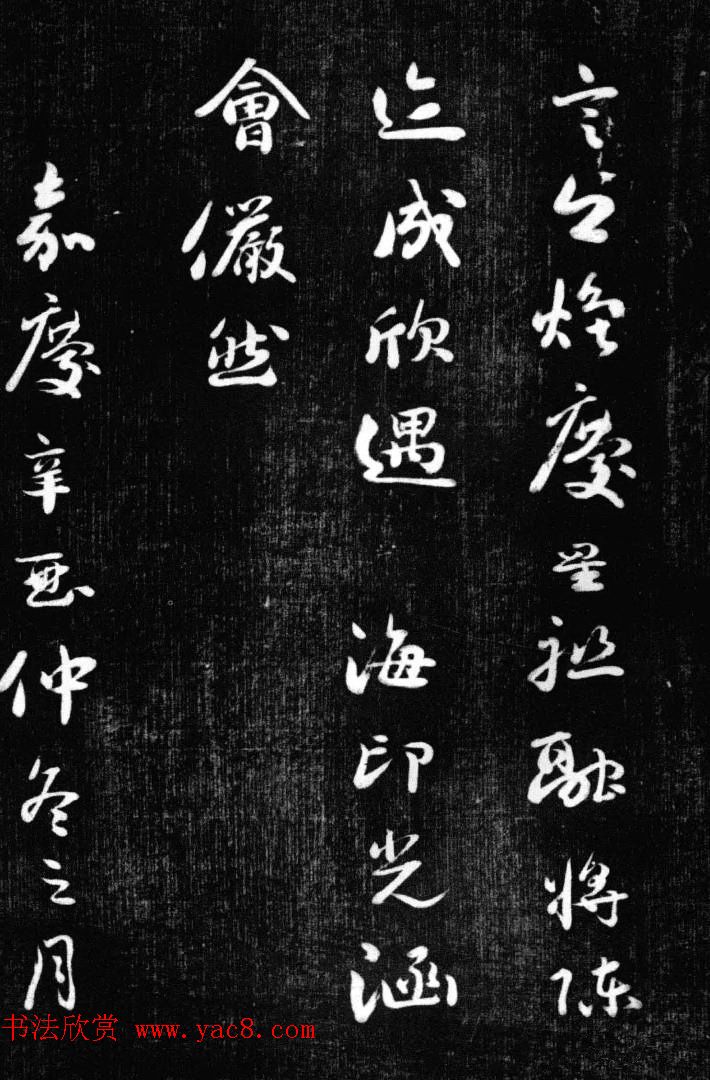 言慶星祉融將陳
迹成欣遇 海印光涵
會儼然
嘉慶辛酉仲冬之月
书法欣赏 www.yac8.com